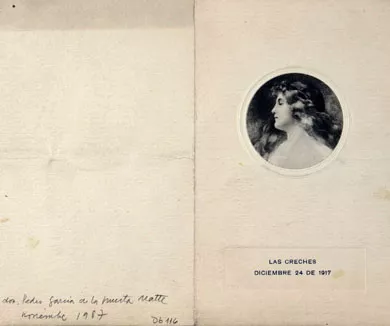 don. Pedro García de la Huerta Matte
noviembre 1987
DE 116
LAS CRECHES
DICIEMBRE 24 DE 1917